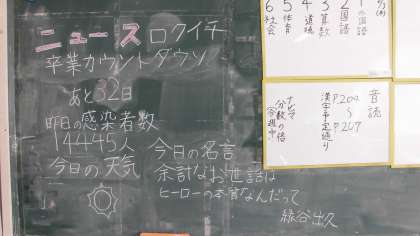 ニュースロクイチ
卒業カウントダウン
あと32日
昨日の感染者数
14445人
今日の天気
今日の名言
余計なお世話は
ヒーローの本質なんだって
緑谷出久
1の国語
2国語
3算数
4道徳
5体育
6社会
音読
P.204
〜
P.207
漢字予定通り
ナビマ
分数の倍